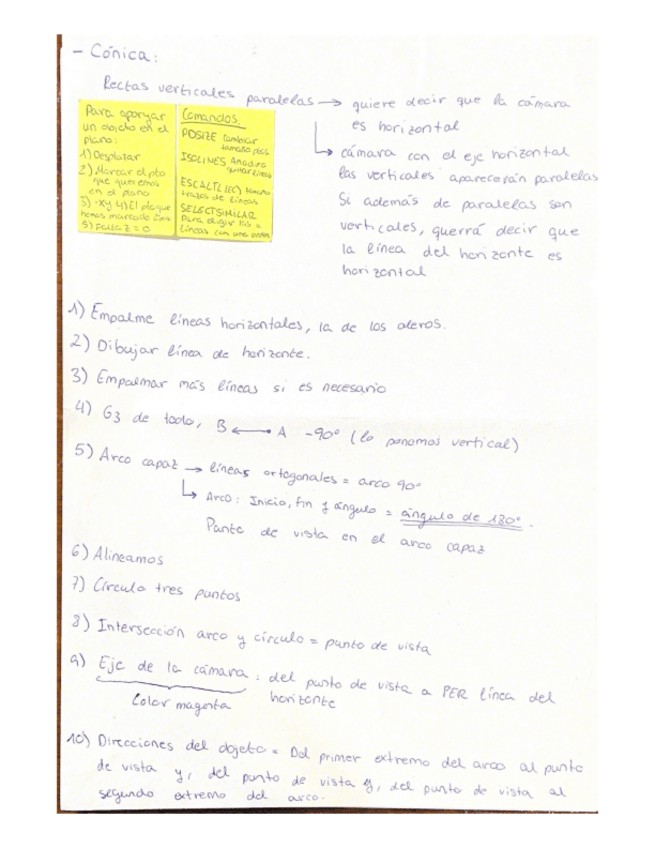 - Cónica:
Rectas verticales paralelas → quiere decir que la cámara
es horizontal
↳ cámara con el eje horizontal
las verticales aparecerán paralelas
Si además de paralelas son
verticales, querrá decir que
la línea del horizonte es
horizontal
Para apoyar
un objeto en el
plano:
1) Desplazar
2) Marcar el pto
que queremos
en el plano
3) .xy 4) El pto que
hemos marcado
5) Falta Z = 0
Comandos.
PDSIZE Cambiar
tamaño ptos
ISOLINES Añadir o
quitar líneas
ESCALTL (EC) tamaño
trazos de líneas
SELECTSIMILAR
Para elegir las =
líneas con una orden
1) Empalme líneas horizontales, la de los aleros.
2) Dibujar línea de horizonte.
3) Empalmar más líneas si es necesario
4) G3 de todo, B ← A -90° (lo ponemos vertical)
5) Arco capaz → líneas ortogonales = arco 90°
↳ Arco: Inicio, fin y ángulo = ángulo de 180°.
Punto de vista en el arco capaz
6) Alineamos
7) Círculo tres puntos
8) Intersección arco y círculo = punto de vista
9) Eje de la cámara: del punto de vista a PER línea del
horizonte
Color magenta
10) Direcciones del objeto = Del primer extremo del arco al punto
de vista y, del punto de vista y, del punto de vista al
segundo extremo del arco.